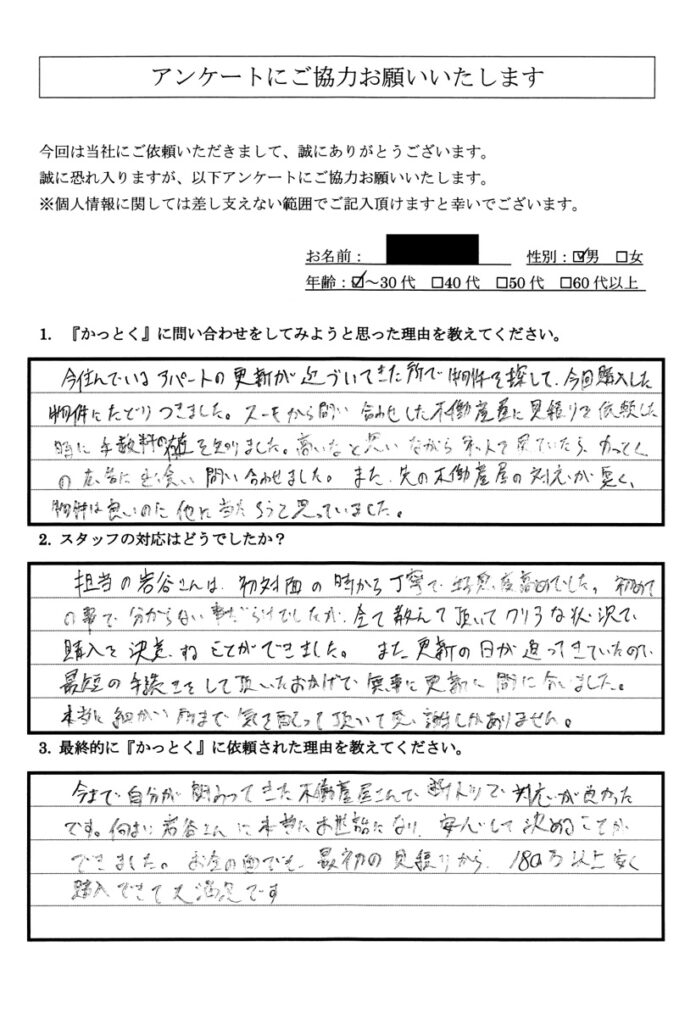 アンケートにご協力お願いいたします
今回は当社にご依頼いただきまして、誠にありがとうございます。
誠に恐れ入りますが、以下アンケートにご協力お願いいたします。
※個人情報に関しては差し支えない範囲でご記入頂けますと幸いでございます。
お名前： 性別：☑男 □女
年齢：☑～30代 □40代 □50代 □60代以上
1. 『かっとく』に問い合わせをしてみようと思った理由を教えてください。
今住んでいるアパートの更新が近づいてきた所で物件を探して、今回購入した
物件にたどりつきました。スーモから問い合わせした不働産屋に見積りを依頼した
時に手数料の値を知りました。高いなと思いながらネットで見ていたら、かってく
の広告に出会い問い合わせました。また、先の不働産屋の対応が悪く、
物件は良いのに他に当たろうと思っていました。
2. スタッフの対応はどうでしたか？
担当の岩谷さんは、初対面の時から丁寧で好感度高めでした。初めて
の事で分からない事だらけでしたが、全て教えて頂いてクリアな状況で
購入を決意することができました。また更新の日が迫ってきていたので
最短の手続きをして頂いたおかげで無事に更新に間に合いました。
本当に細かい所まで気を配って頂いて感謝しかありません。
3. 最終的に『かっとく』に依頼された理由を教えてください。
今まで自分が関わってきた不働産屋さんで断トツで対応が良かった
です。何より岩谷さんに本当にお世話になり、安心して決めることが
できました。お金の面でも、最初の見積りから、180万以上安く
購入できて大満足です